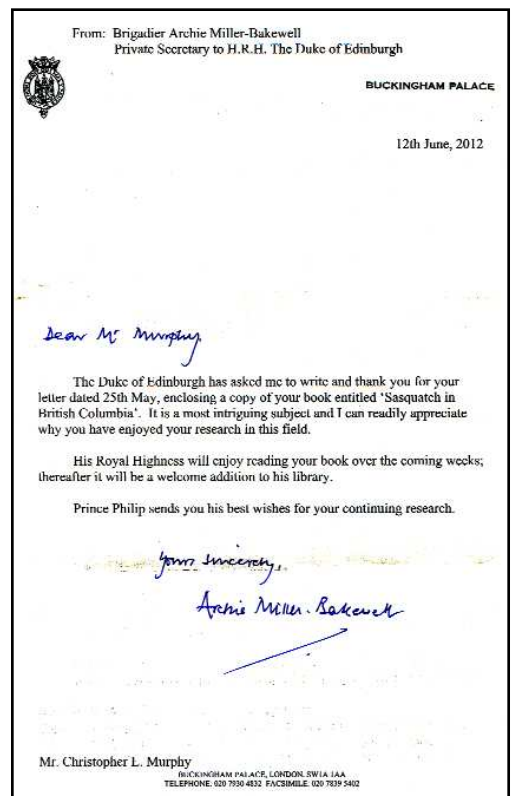 From: Brigadier Archie Miller-Bakewell
Private Secretary to H.R.H. The Duke of Edinburgh
BUCKINGHAM PALACE
12th June, 2012
Dear Mr Murphy,
The Duke of Edinburgh has asked me to write and thank you for your
letter dated 25th May, enclosing a copy of your book entitled 'Sasquatch in
British Columbia'. It is a most intriguing subject and I can readily appreciate
why you have enjoyed your research in this field.
His Royal Highness will enjoy reading your book over the coming weeks;
thereafter it will be a welcome addition to his library.
Prince Philip sends you his best wishes for your continuing research.
Yours sincerely,
Archie Miller-Bakewell
Mr. Christopher L. Murphy
BUCKINGHAM PALACE, LONDON. SW1A 1AA
TELEPHONE: 020 7930 4832 FACSIMILE: 020 7839 5402